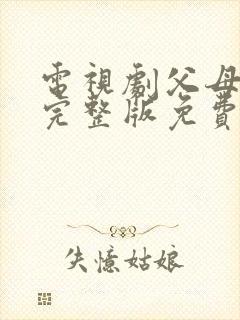 電視劇父母
完整版免費
失憶姑娘